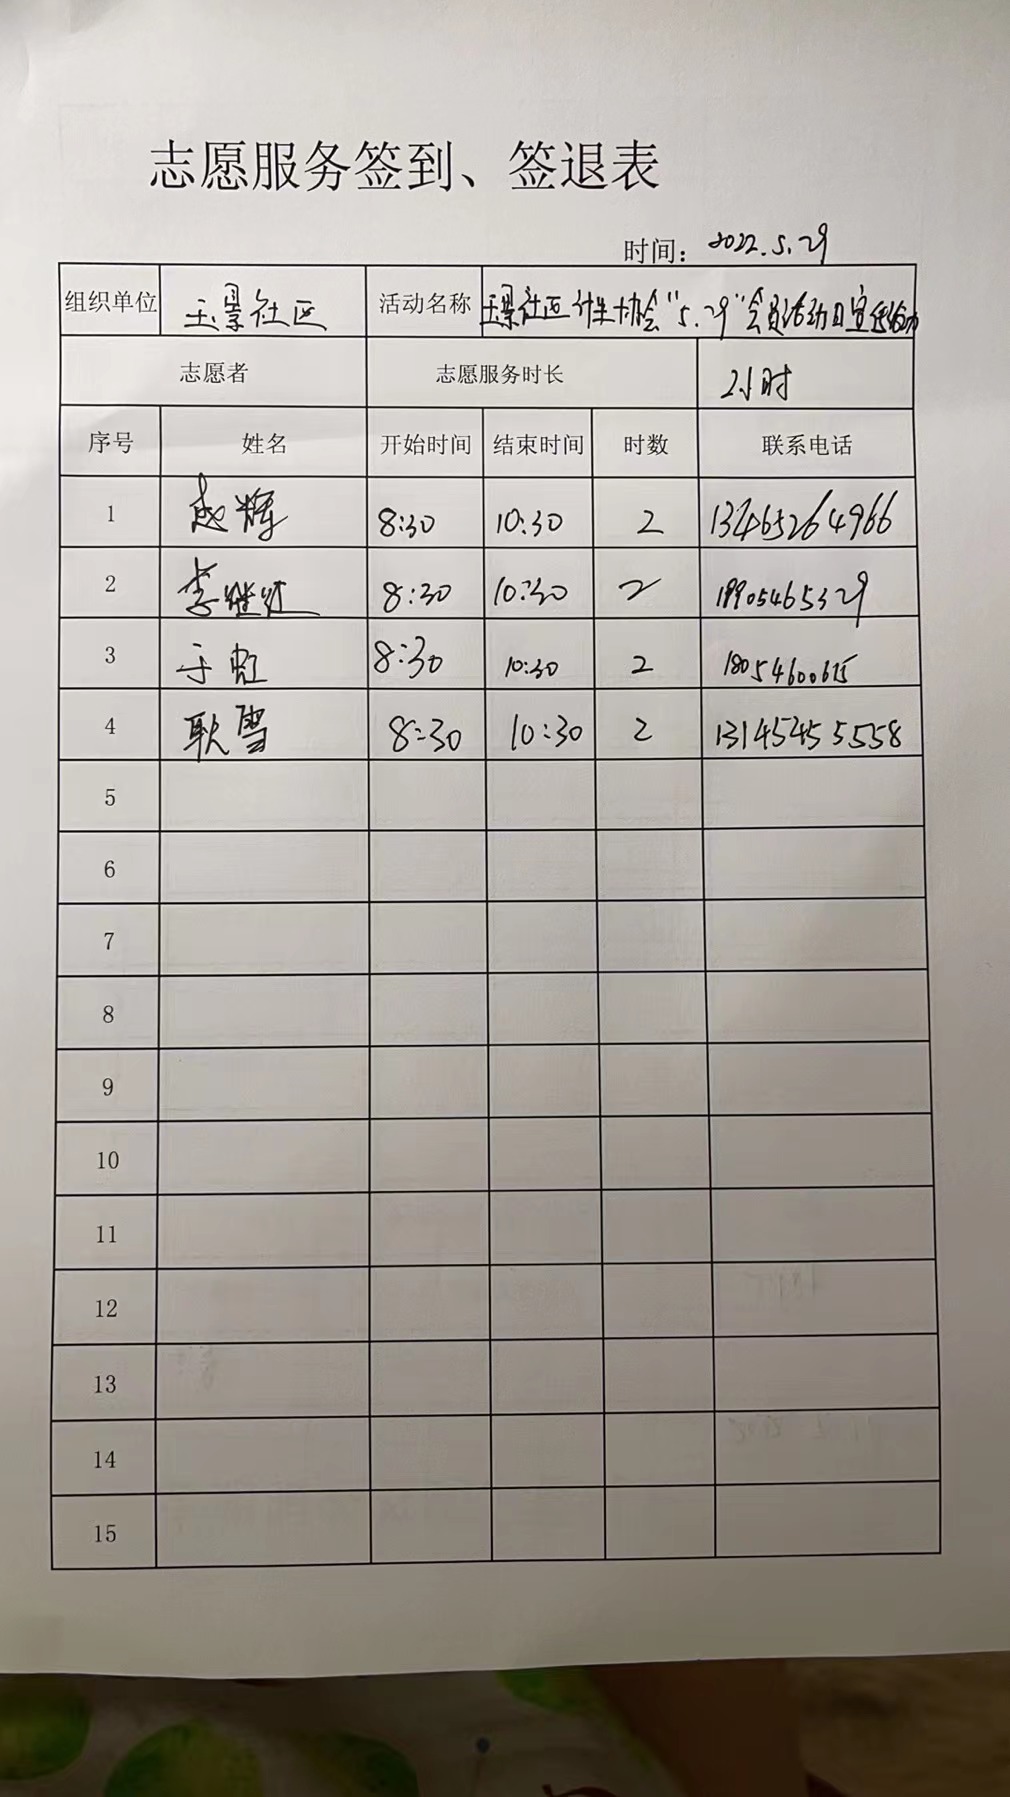 志愿服务签到、签退表
时间：2022.5.29
组织单位 玉景社区 活动名称 玉景社区计生协会“5.29”会员活动日宣传活动
志愿者 志愿服务时长 2小时
序号 姓名 开始时间 结束时间 时数 联系电话
1 赵辉 8:30 10:30 2
2 李继红 8:30 10:30 2 19905465329
3 于虹 8:30 10:30 2 18054600615
4 耿雪 8:30 10:30 2 13145455558
5
6
7
8
9
10
11
12
13
14
15